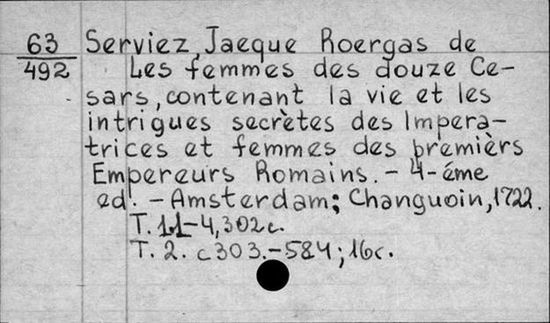 63
492
Serviez, Jacque Roergas de
Les femmes des douze Ce-
sars, contenant la vie et les
intrigues secrètes des Impera-
trices et femmes des premièrs
Empereurs Romains. - 4-éme
ed. - Amsterdam; Changuoin, 1722.
T. 11-4, 302 c.
T. 2. c 303. - 584; 16c.